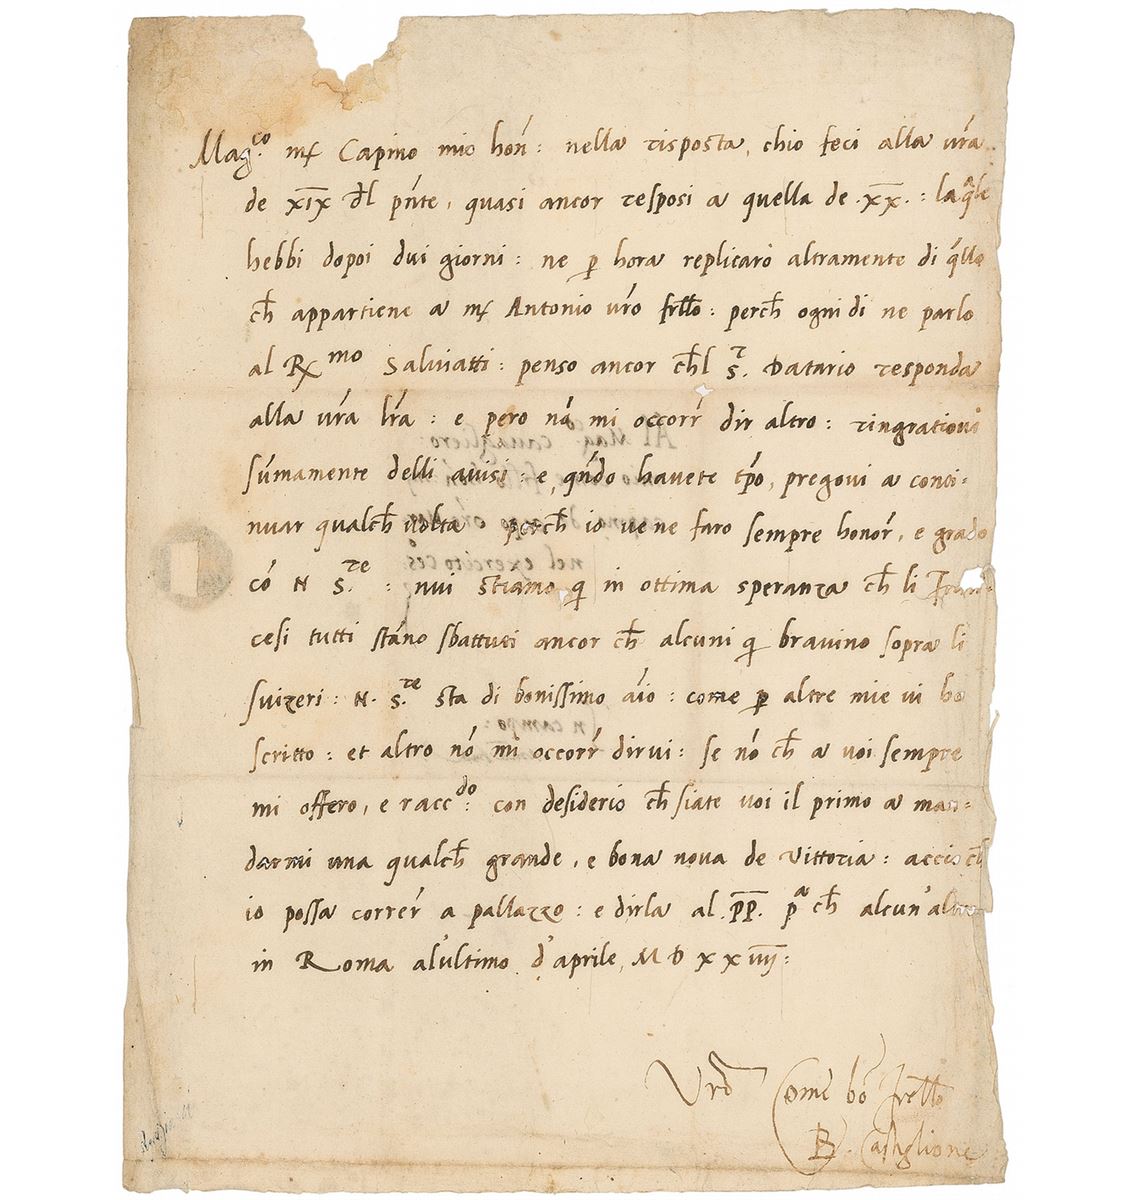 Mag.co mſ Capino mio hon̄: nella risposta, chio feci alla vr̄a
de xıx dl pn̄te, quasi ancor resposi a quella de .xx.: la qale
hebbi dopoi dui giorni: ne ꝑ hora replicarò altramente di q̄lla
ch̄ appartiene a mſ Antonio vr̄o frl̄lo: perch̄ ogni di ne parlo
al Rmo Salviatti: penso ancor ch̄l S.r Datario responda
alla vr̄a lr̄a: e pero nō mi occorr̄ dir altro: ringratiovi
sūmamente delli avisi: e qn̄do havete tp̄o, pregovi a conti-
nuar qualch̄ volta perch̄ io ve ne faro sempre honor̄, e grado
cō N S.re: nui stiamo qi in ottima speranza ch̄ li Fran-
cesi tutti stāno sbattuti ancor ch̄ alcuni qi bravino sopra li
svizeri: N. S.re sta di bonissimo āio: come ꝑ altre mie vi ho
scritto: et altro nō mi occorr̄ dirvi: se nō ch̄ a voi sempre
mi offero, e racc.do: con desiderio ch̄ siate voi il primo a man-
darmi una qualch̄ grande, e bona nova de Vittoria: accio ch̄
io possa correr̄ a pallazzo: e dirla al .PP. pa ch̄ alcun'altro
in Roma al'ultimo d'aprile, MDxxiiij:
Vro Come bō frello
B. Castiglione
Al Mag.co cavagliero
nel exercito Ces.o
In campo: